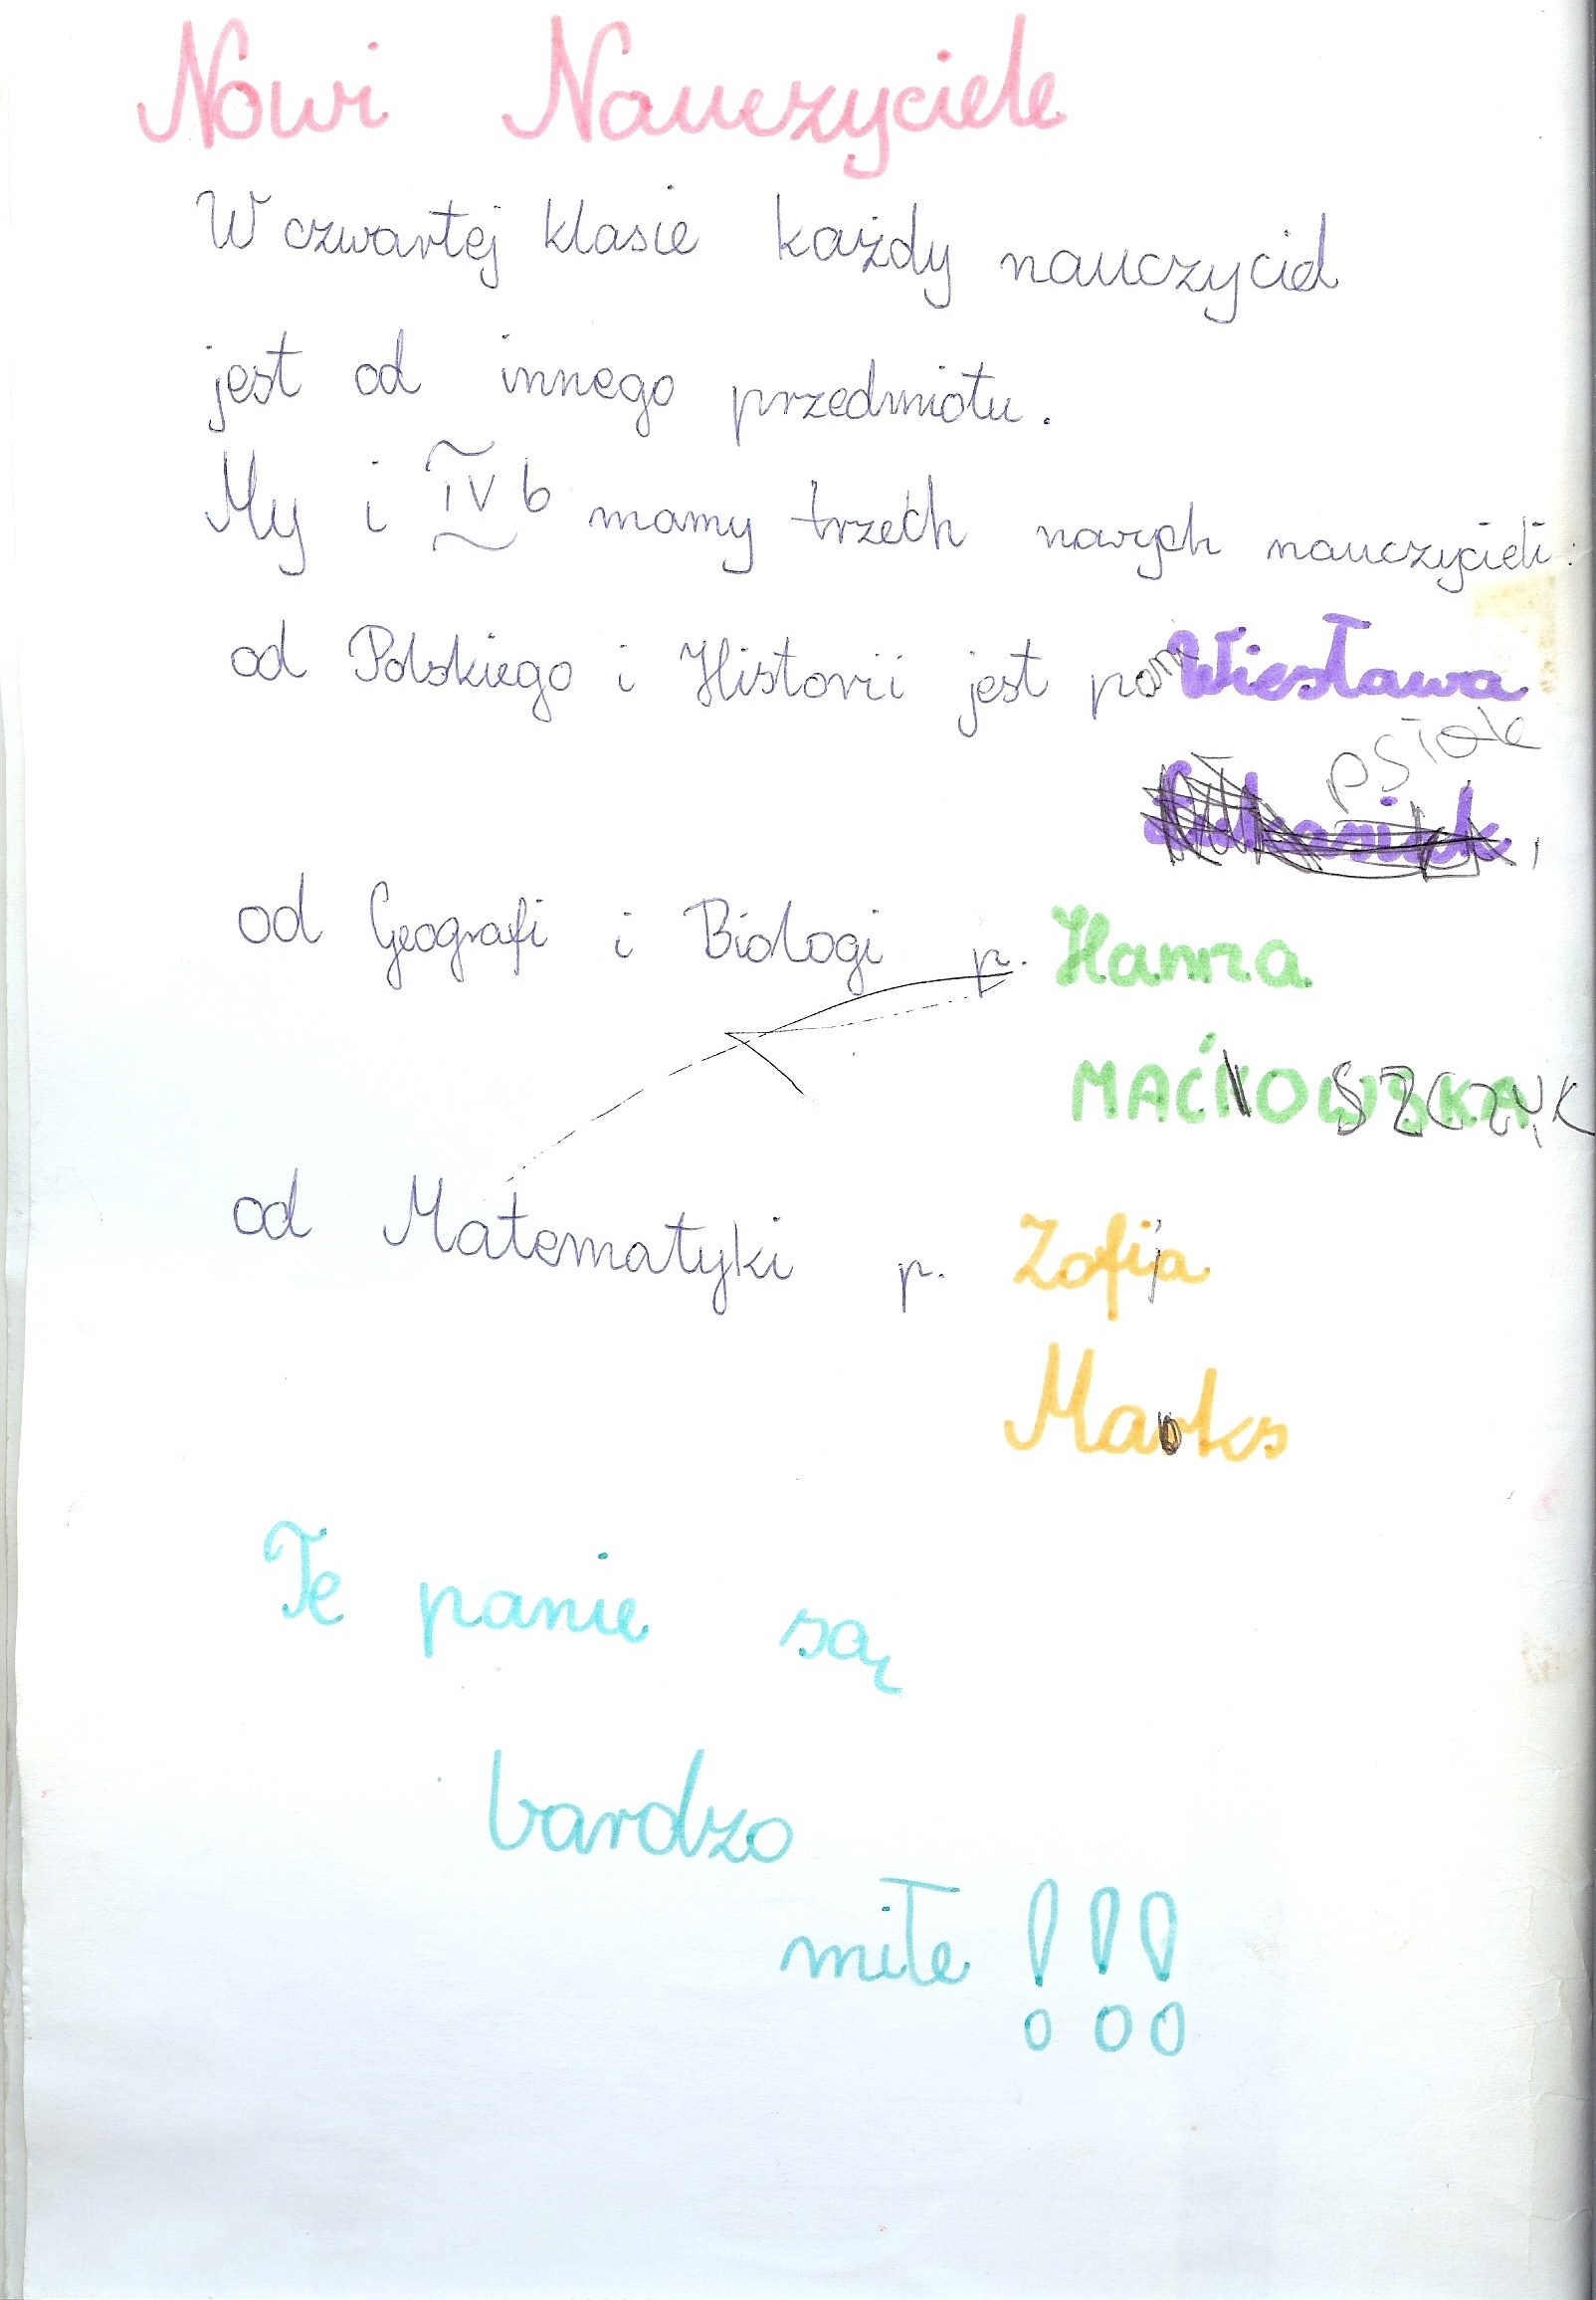 Nowi Nauczyciele
W czwartej klasie każdy nauczyciel
jest od innego przedmiotu.
My i IV b mamy trzech nowych nauczycieli:
od Polskiego i Historii jest pani Wiesława
psiak
,
od Geografi i Biologi p. Hanna
MAĆKOWSKA SZCZYK
od Matematyki p. Zofija
Maoks
Te panie są
bardzo
miłe !!!